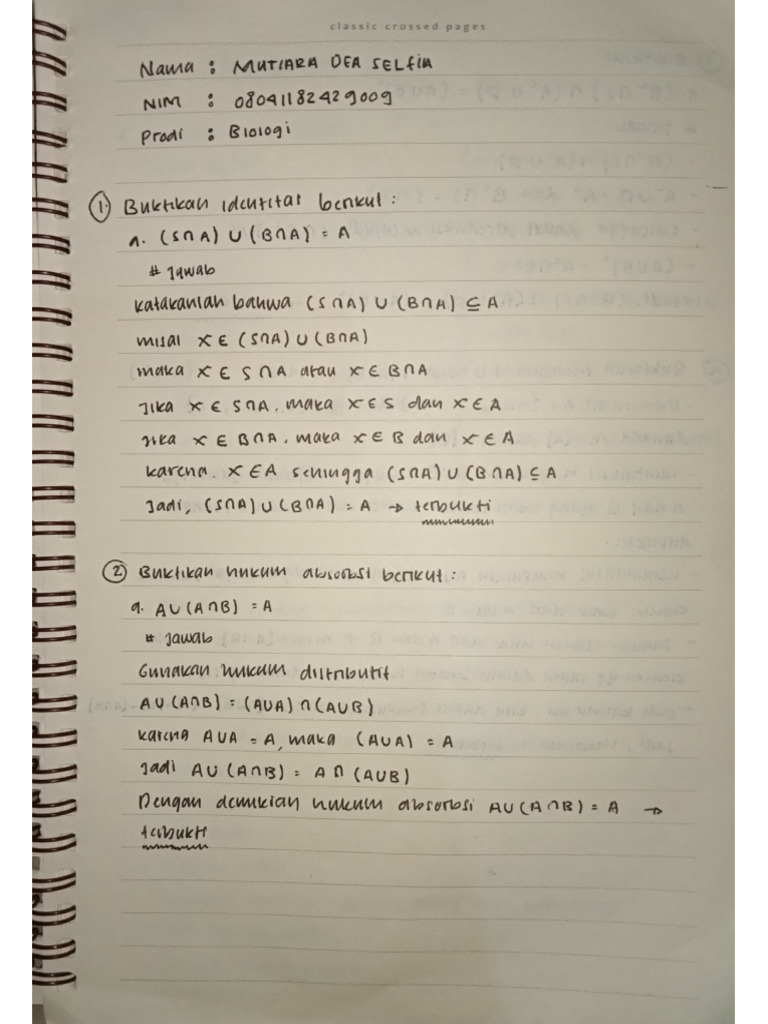 classic crossed pages
Nama : MUTIARA DEA SELFIA
NIM : 08041182429009
Prodi : Biologi
① Buktikan identitas berikut :
a. (S∩A) ∪ (B∩A) = A
# Jawab
katakanlah bahwa (S∩A) ∪ (B∩A) ⊆ A
misal x ∈ (S∩A) ∪ (B∩A)
maka x ∈ S∩A atau x ∈ B∩A
Jika x ∈ S∩A, maka x∈S dan x∈A
Jika x ∈ B∩A, maka x∈B dan x∈A
karena, x∈A sehingga (S∩A) ∪ (B∩A) ⊆ A
Jadi, (S∩A) ∪ (B∩A) = A → terbukti
② Buktikan hukum absorbsi berikut :
a. A∪(A∩B) = A
# Jawab
Gunakan hukum distributif
A∪(A∩B) = (A∪A)∩(A∪B)
karena A∪A = A, maka (A∪A) = A
Jadi A∪(A∩B) = A∩(A∪B)
Dengan demikian hukum absorbsi A∪(A∩B) = A →
terbukti